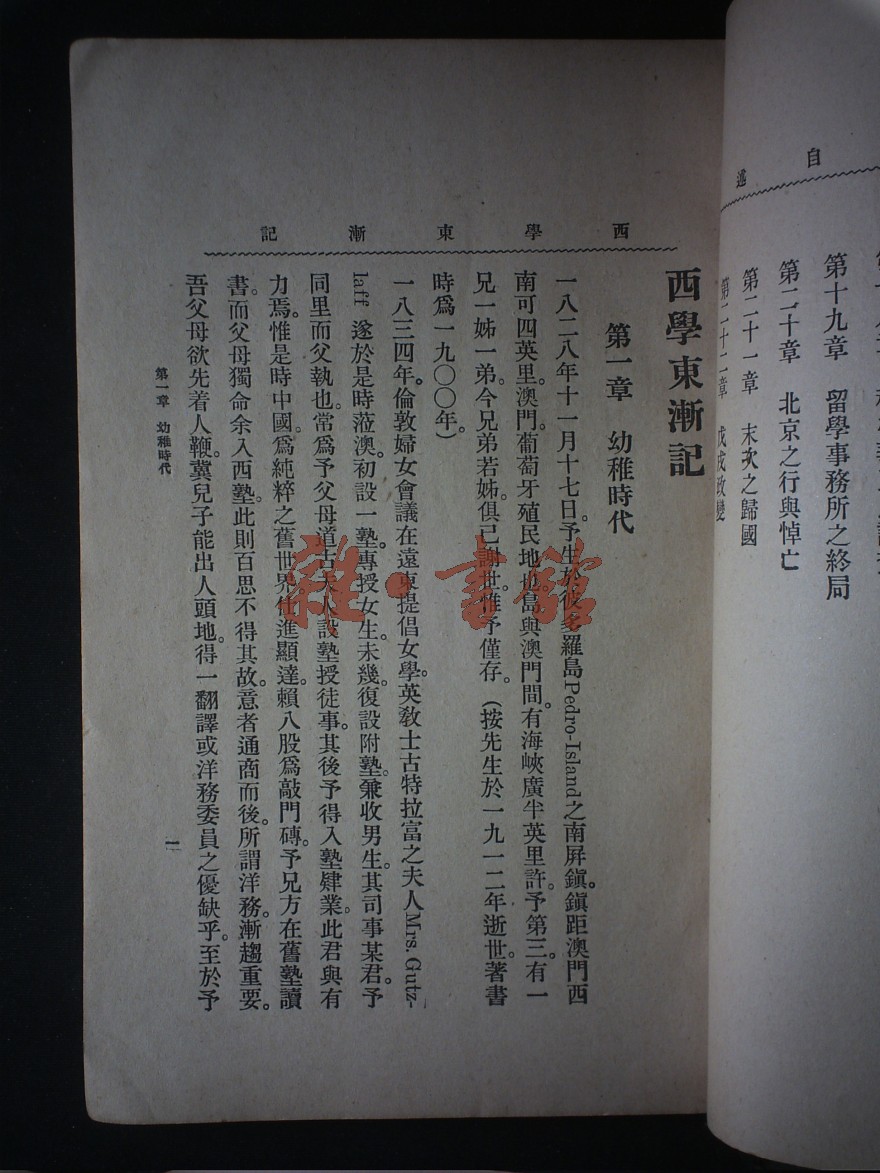 自 述
第十九章　留學事務所之終局
第二十章　北京之行與悼亡
第二十一章　末次之歸國
第二十二章　戊戌政變
西 學 東 漸 記
西學東漸記
第一章　幼稚時代
一八二八年十一月十七日。予生於彼多羅島Pedro-Island之南屏鎮。鎮距澳門西
南可四英里。澳門。葡萄牙殖民地也。島與澳門間。有海峽廣半英里許。予第三。有一
兄一姊一弟。今兄弟若姊。俱已謝世。惟予僅存。（按先生於一九一二年逝世。著書
時爲一九〇〇年。）
一八三四年。倫敦婦女會議在遠東提倡女學。英教士古特拉富之夫人Mrs. Gutz-
laff 遂於是時蒞澳。初設一塾。專授女生。未幾。復設附塾。兼收男生。其司事某君。予
同里而父執也。常爲予父母道古夫人設塾授徒事。其後予得入塾肄業。此君與有
力焉。惟是時中國。爲純粹之舊世界。仕進顯達。賴八股爲敲門磚。予兄方在舊塾讀
書。而父母獨命余入西塾。此則百思不得其故。意者通商而後。所謂洋務。漸趨重要。
吾父母欲先着人鞭。冀兒子能出人頭地。得一翻譯或洋務委員之優缺乎。至於予
第一章　幼稚時代
一
雜·書館